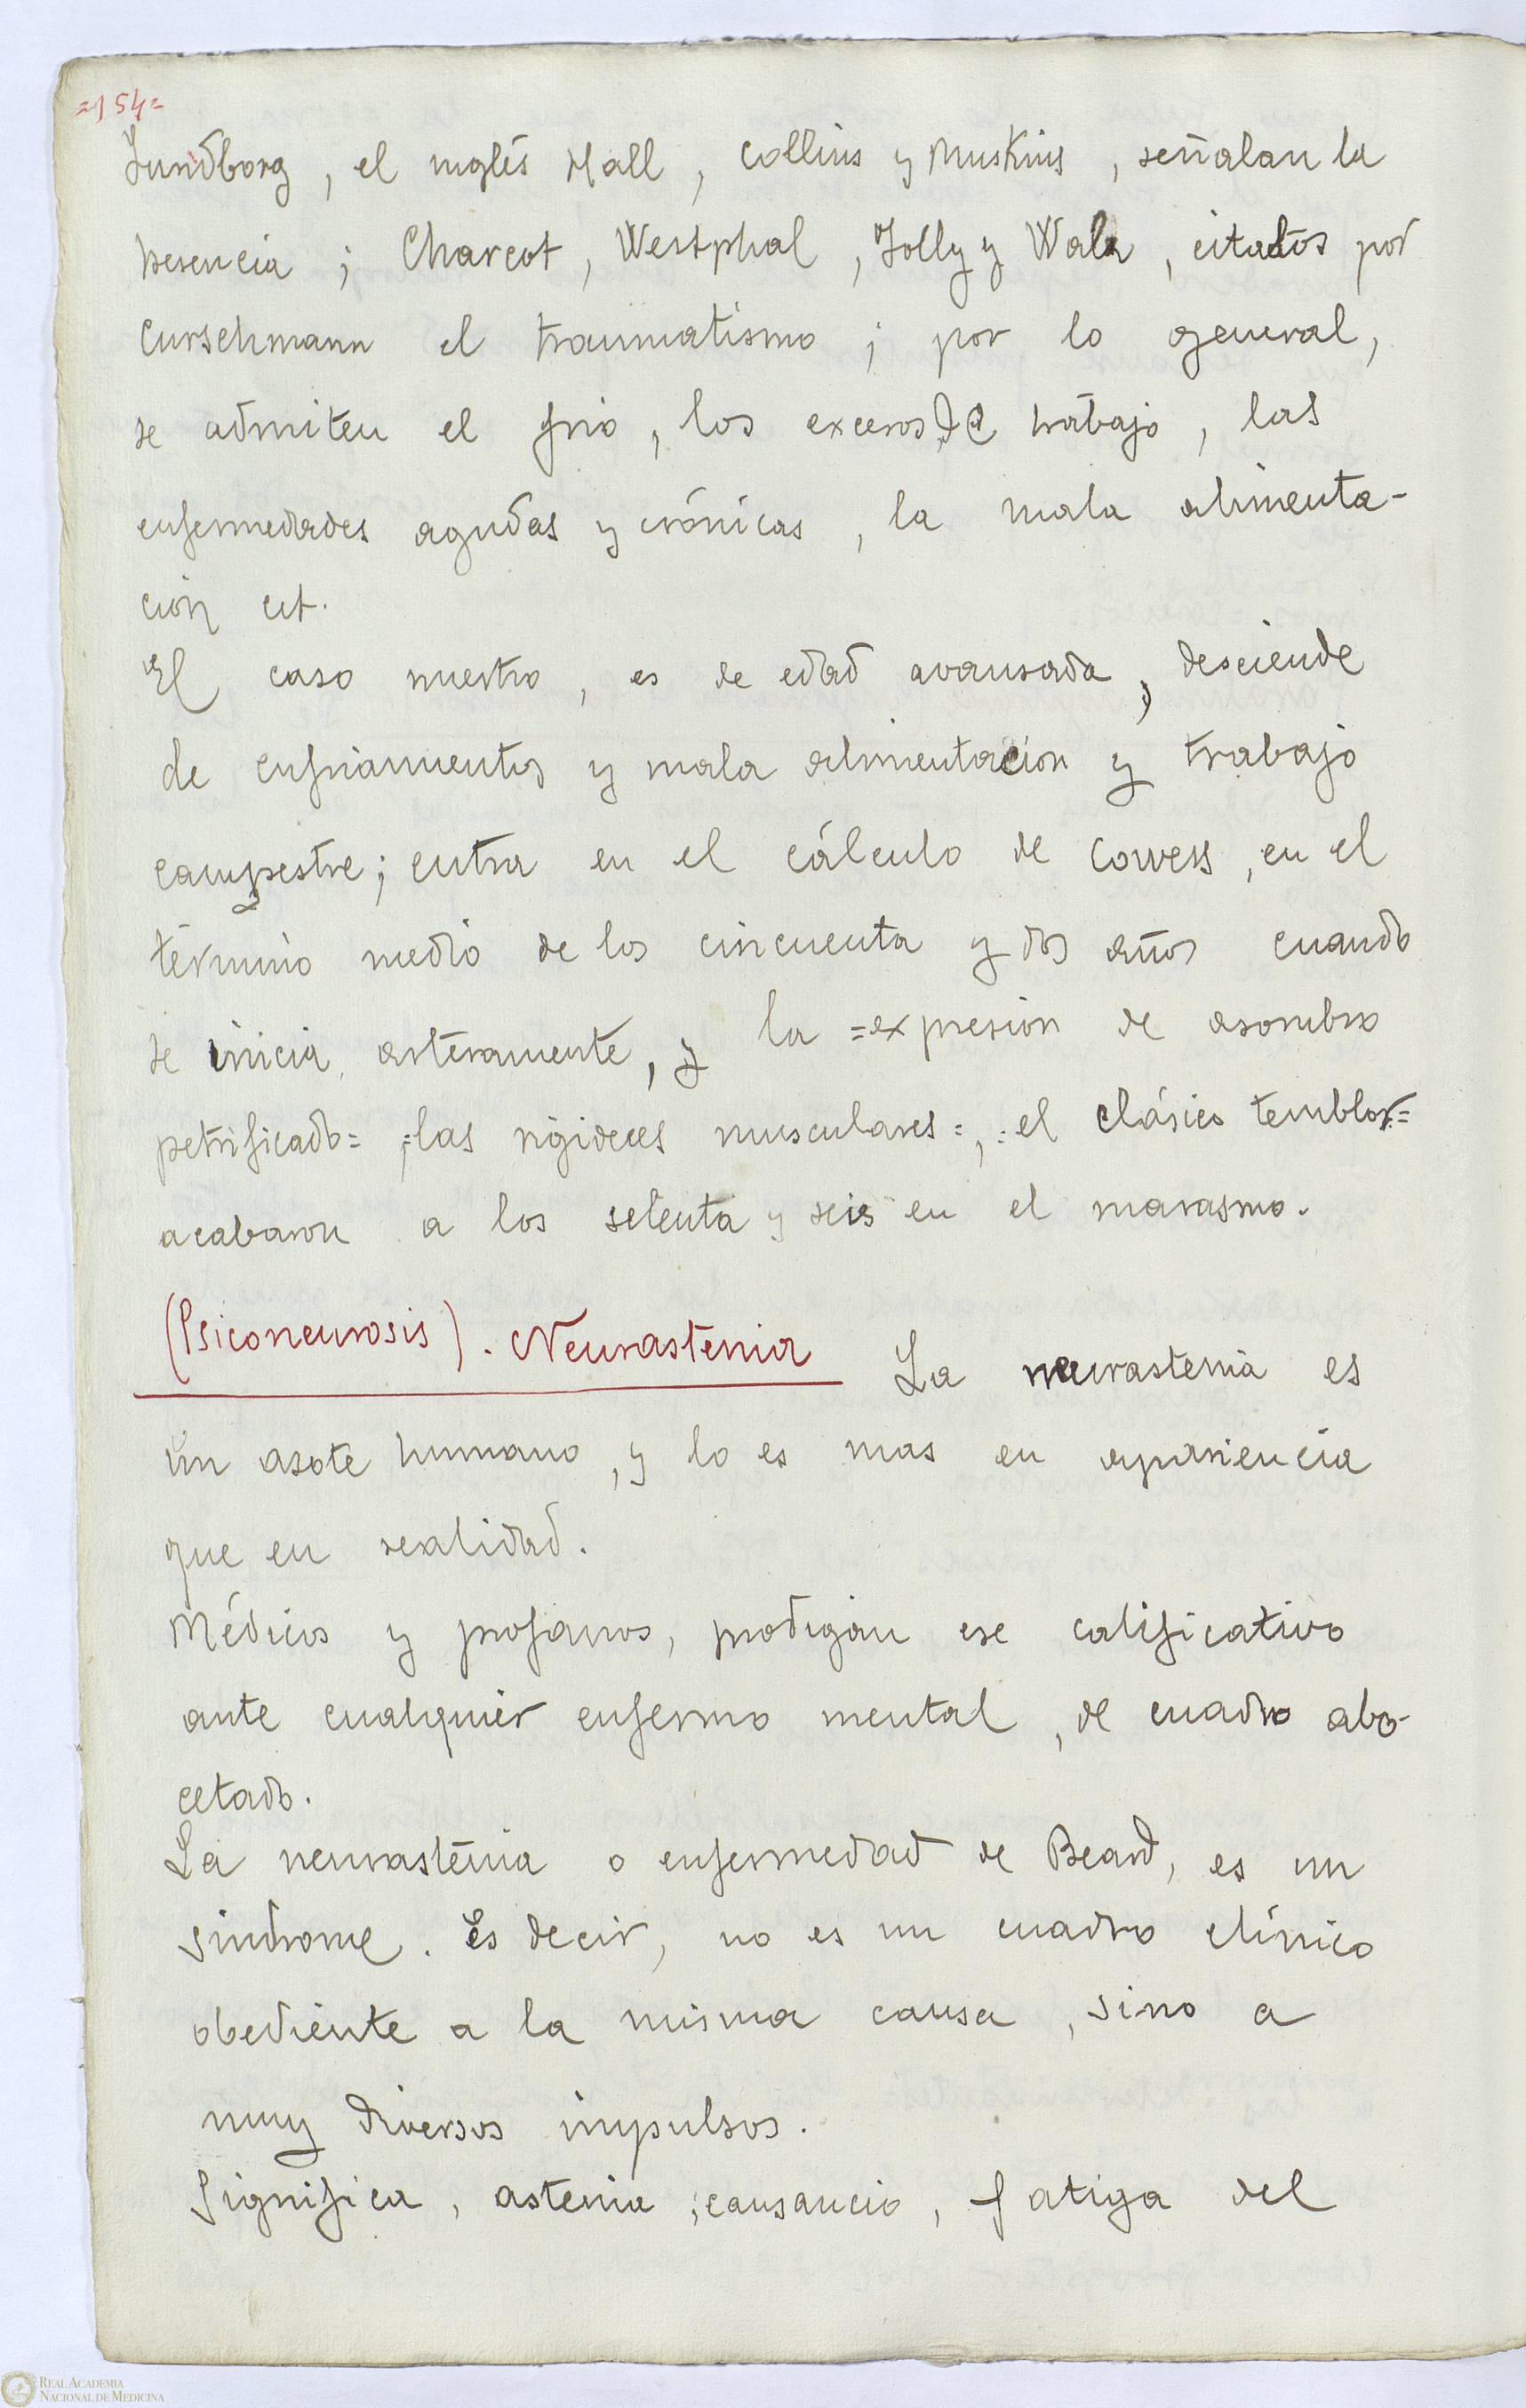 =154=
Lundborg, el inglés Hall, Collins y Muskins, señalan la
herencia; Charcot, Westphal, Jolly y Walz, citados por
Curschmann el traumatismo; por lo general,
se admiten el frio, los excesos de trabajo, las
enfermedades agudas y crónicas, la mala alimenta-
ción ect.
El caso nuestro, es de edad avansada, desciende
de enfriamientos y mala alimentación y trabajo
campestre; entra en el cálculo de Cowers, en el
término medio de los cincuenta y dos años cuando
se inicia arteramente, y la =expresión de asombro
petrificado=, =las rigideces musculares=, =el clásico temblor=
acabaron a los setenta y seis en el marasmo.
(Psiconeurosis). Neurastenia La neurastenia es
un asote humano, y lo es mas en apariencia
que en realidad.
Médicos y profanos, prodigan ese calificativo
ante cualquier enfermo mental, de cuadro abo-
cetado.
La neurastenia o enfermedad de Beard, es un
síndrome. Es decir, no es un cuadro clínico
obediente a la misma causa, sino a
muy diversos impulsos.
Significa, astenia, cansancio, fatiga del
REAL ACADEMIA
NACIONAL DE MEDICINA